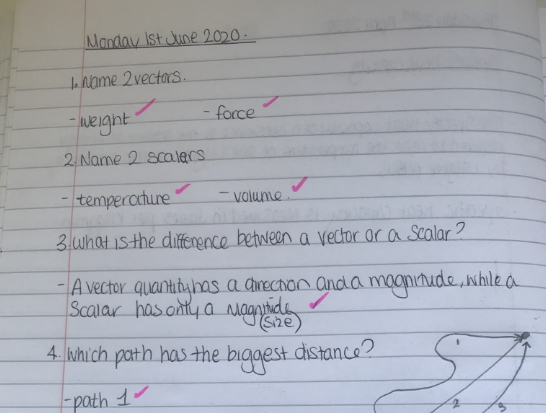 Monday 1st June 2020.
1. Name 2 vectors.
- weight - force
2. Name 2 scalers
- temperature - volume.
3. What is the difference between a vector or a scalar?
- A vector quantity has a direction and a magnitude, while a
Scalar has only a magnitude
(size)
4. Which path has the biggest distance?
- path 1
1
2
3